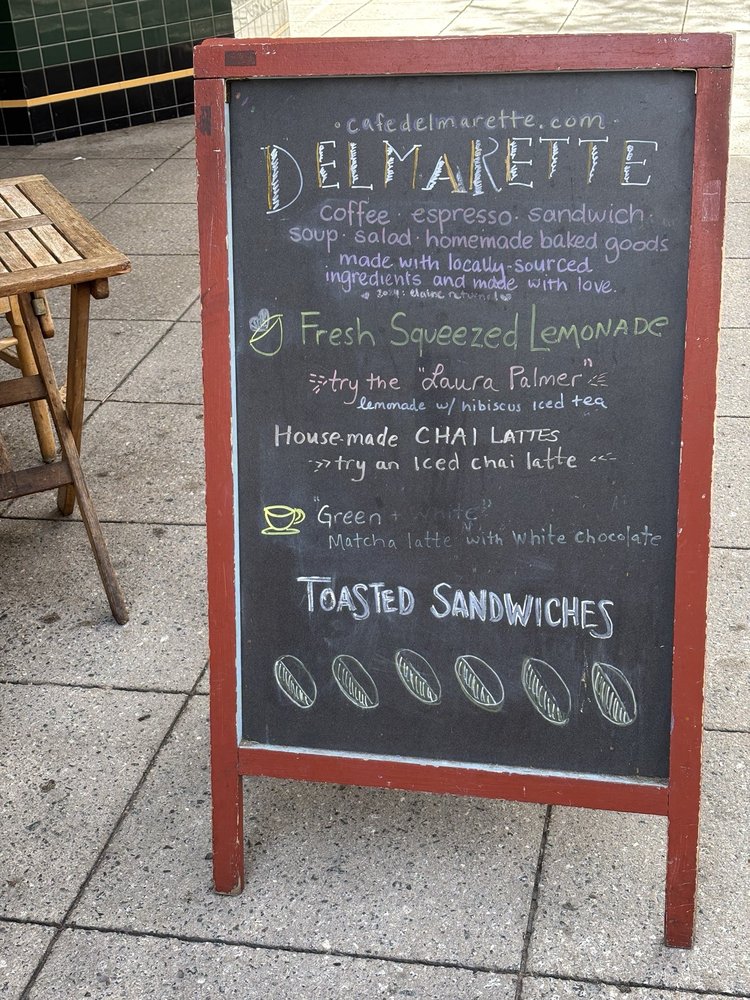 · cafedelmarette.com ·
DELMARETTE
coffee · espresso · sandwich ·
soup · salad · homemade baked goods
made with locally-sourced
ingredients and made with love.
2024: elaine returns!
Fresh Squeezed LEMONADE
try the "Laura Palmer"
lemonade w/ hibiscus iced tea
House-made CHAI LATTES
->> try an Iced chai latte <<-
"Green + White"
Matcha latte with White chocolate
TOASTED SANDWICHES